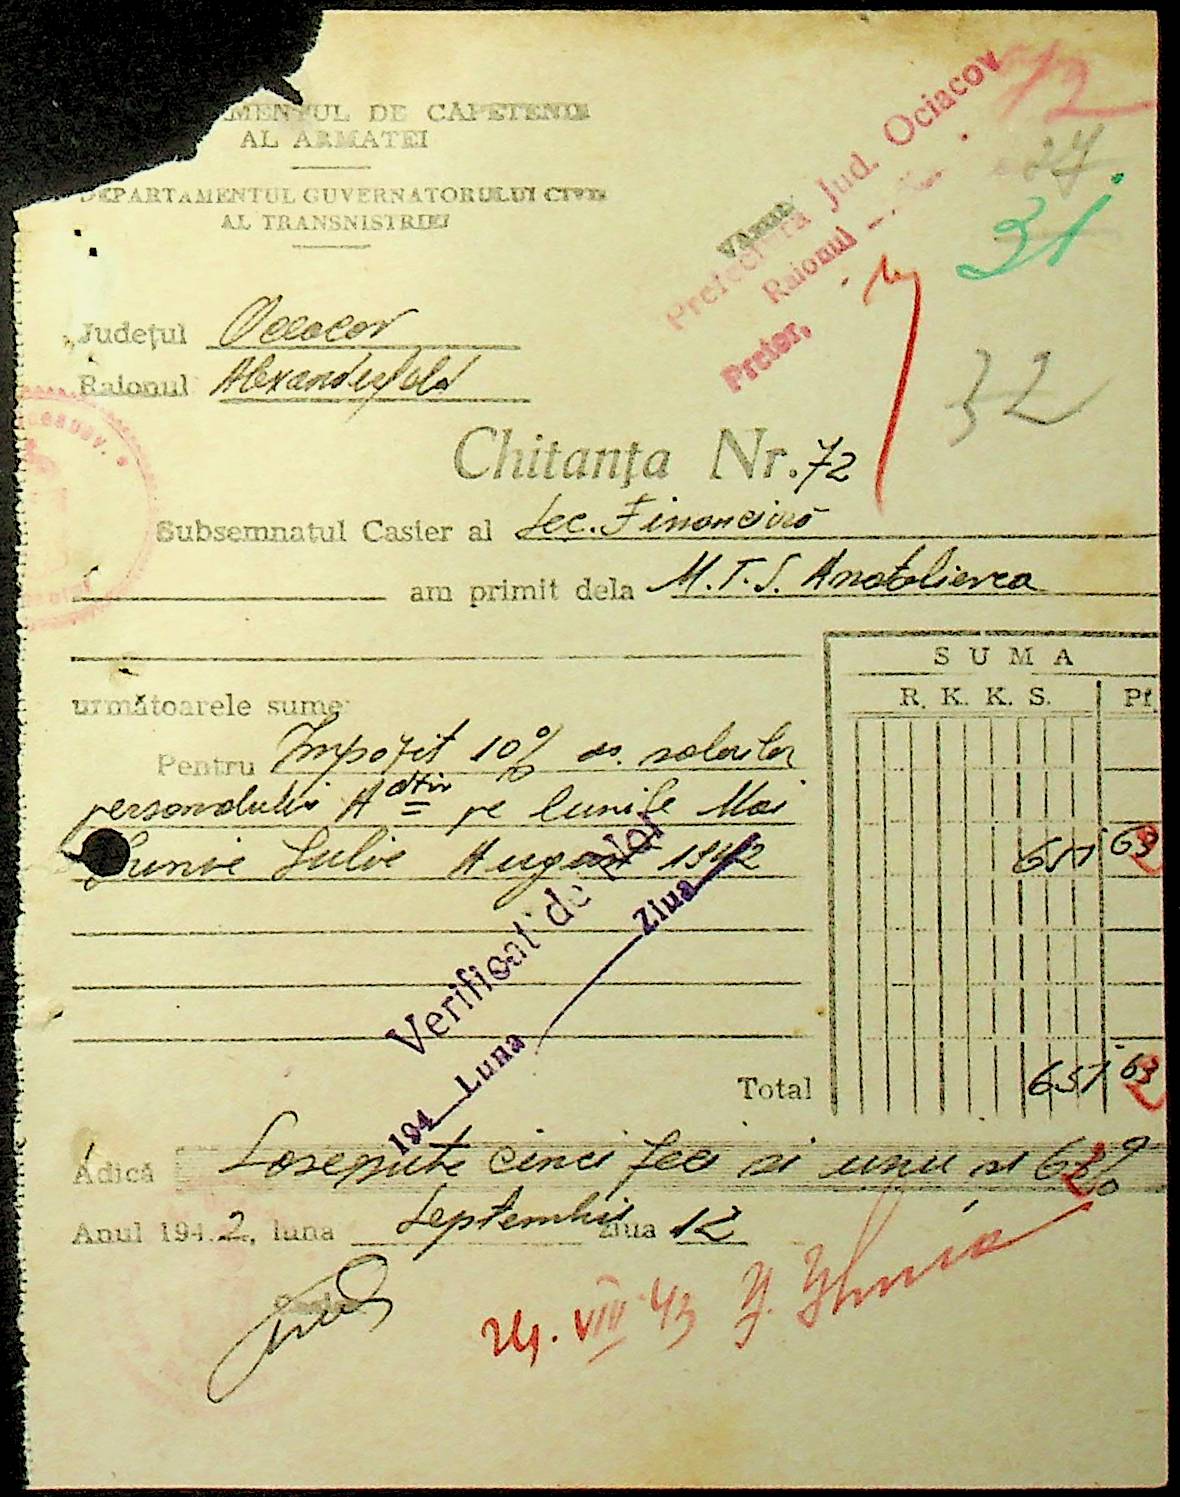 AMENTUL DE CAPETENIE
AL ARMATEI
DEPARTAMENTUL GUVERNATORULUI CIVIL
AL TRANSNISTRIEI
Prefectura Jud. Ociacov
Raionul
Pretor,
12
27
31
32
Județul Oceacov
Raionul Alexanderfeld
Chitanța Nr. 72
Subsemnatul Casier al Sec. Financiară
am primit dela M.T.S. Anatolievca
următoarele sume:
SUMA
R. K. K. S. Pf.
Pentru Impozit 10% as. salariilor
personalului Adtiv pe lunile Mai
Iunie Iulie August 1942 651 63
Verificat de Noi
194 Luna Ziua
Total 651 63
Adică Șasesute cinci zeci si unu si 63%
Anul 1942, luna Septembrie ziua 12
Casier
24. VIII 43